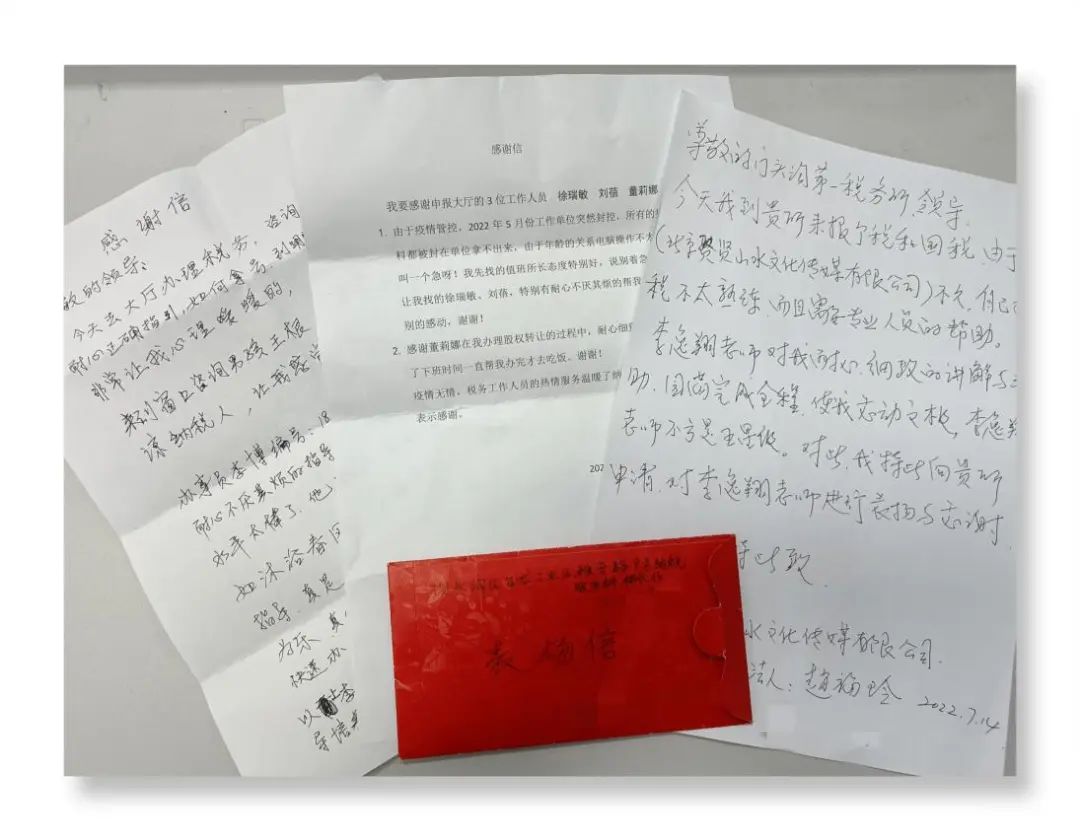 感谢信
敬的领导:
今天去大厅办理税务,咨询
耐心正确指引,如何拿号,到哪
非常让我心理暖暖的,
来到窗口咨询男孩王根
谅纳税人,让我感
办事员李博编号:18
耐心不厌其烦的指导
水平太棒了,他
如沐浴春风
指导,真是
为乐,真
快速办
以
感谢信
我要感谢申报大厅的 3 位工作人员 徐瑞敏 刘蓓 董莉娜
1. 由于疫情管控,2022 年 5 月份工作单位突然封控,所有的
料都被封在单位拿不出来,由于年龄的关系电脑操作不
叫一个急呀!我先找的值班所长态度特别好,说别着急
让我找的徐瑞敏、刘蓓,特别有耐心不厌其烦的帮我
别的感动,谢谢!
2. 感谢董莉娜在我办理股权转让的过程中,耐心细
了下班时间一直帮我办完才去吃饭。谢谢!
疫情无情,税务工作人员的热情服务温暖了纳
表示感谢。
207
尊敬的门头沟第一税务所领导:
今天我到贵所来报个税和国税,由于
(北京聚贤山水文化传媒有限公司)不久,自己
税不太熟练,而且需要专业人员的帮助。
李逸翔老师对我耐心、细致的讲解与
助,圆满完成全程,使我感动之极,李逸翔
老师不亏是五星级。对此,我特此向贵所
申请,对李逸翔老师进行表扬与感谢!
特此致
水文化传媒有限公司.
法人:赵福玲 2022.7.14
表扬信